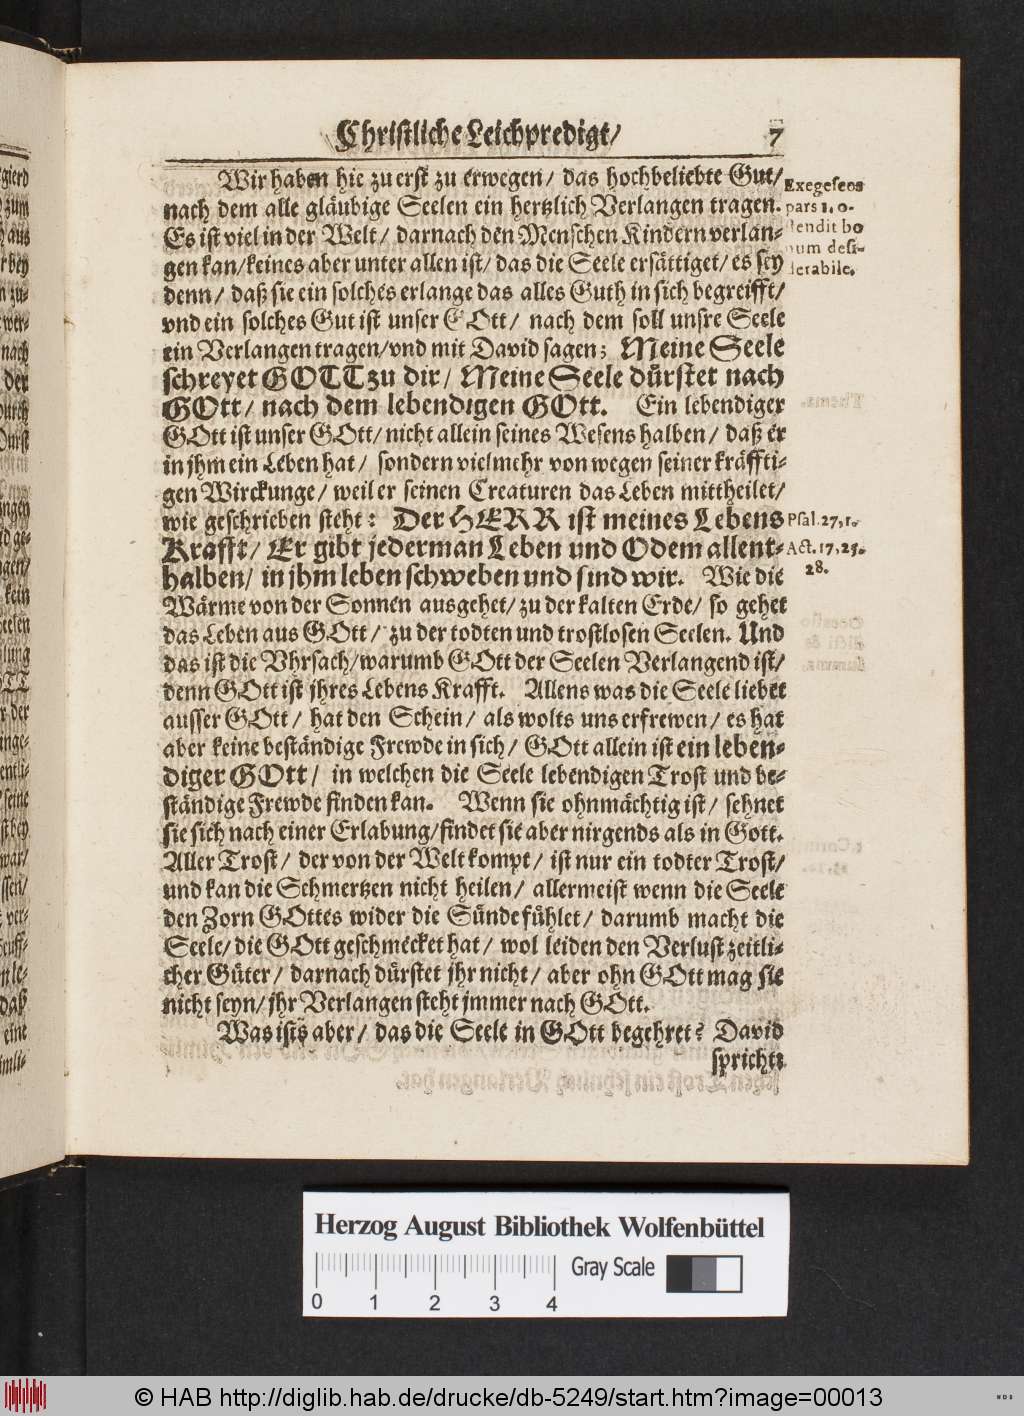 Christliche Leichpredigt/ 7
Wir haben hie zu erst zu erwegen/ das hochbeliebte Gut/
nach dem alle gläubige Seelen ein hertzlich Verlangen tragen.
Es ist viel in der Welt/ darnach den Menschen Kindern verlan-
gen kan/ keines aber unter allen ist/ das die Seele ersättiget/ es sey
denn/ daß sie ein solches erlange das alles Guth in sich begreifft/
vnd ein solches Gut ist unser GOtt/ nach dem soll unsre Seele
ein Verlangen tragen/ vnd mit David sagen; Meine Seele
schreyet GOTT zu dir/ Meine Seele dürstet nach
GOtt/ nach dem lebendigen GOtt. Ein lebendiger
GOtt ist unser GOtt/ nicht allein seines Wesens halben/ daß er
in jhm ein Leben hat/ sondern vielmehr von wegen seiner kräffti-
gen Wirckunge/ weil er seinen Creaturen das Leben mittheilet/
wie geschrieben steht: Der HERR ist meines Lebens
Krafft/ Er gibt jederman Leben und Odem allent-
halben/ in jhm leben schweben und sind wir. Wie die
Wärme von der Sonnen ausgehet/ zu der kalten Erde/ so gehet
das Leben aus GOtt/ zu der todten und trostlosen Seelen. Und
das ist die Vhrsach/ warumb GOtt der Seelen Verlangend ist/
denn GOtt ist jhres Lebens Krafft. Allens was die Seele liebet
ausser GOtt/ hat den Schein/ als wolts uns erfrewen/ es hat
aber keine beständige Frewde in sich/ GOtt allein ist ein leben-
diger GOtt/ in welchen die Seele lebendigen Trost und be-
ständige Frewde finden kan. Wenn sie ohnmächtig ist/ sehnet
sie sich nach einer Erlabung/ findet sie aber nirgends als in Gott.
Aller Trost/ der von der Welt kompt/ ist nur ein todter Trost/
und kan die Schmertzen nicht heilen/ allermeist wenn die Seele
den Zorn GOttes wider die Sünde fühlet/ darumb macht die
Seele/ die GOtt geschmecket hat/ wol leiden den Verlust zeitli-
cher Güter/ darnach dürstet jhr nicht/ aber ohn GOtt mag sie
nicht seyn/ jhr Verlangen steht jmmer nach GOtt.
Was ists aber/ das die Seele in GOtt begehret? David
spricht:
Exegeseos
pars 1. o-
stendit bo
num desi-
derabile.
Psal. 27, 1.
Act. 17, 25.
28.
Herzog August Bibliothek Wolfenbüttel
Gray Scale
0 1 2 3 4
© HAB http://diglib.hab.de/drucke/db-5249/start.htm?image=00013